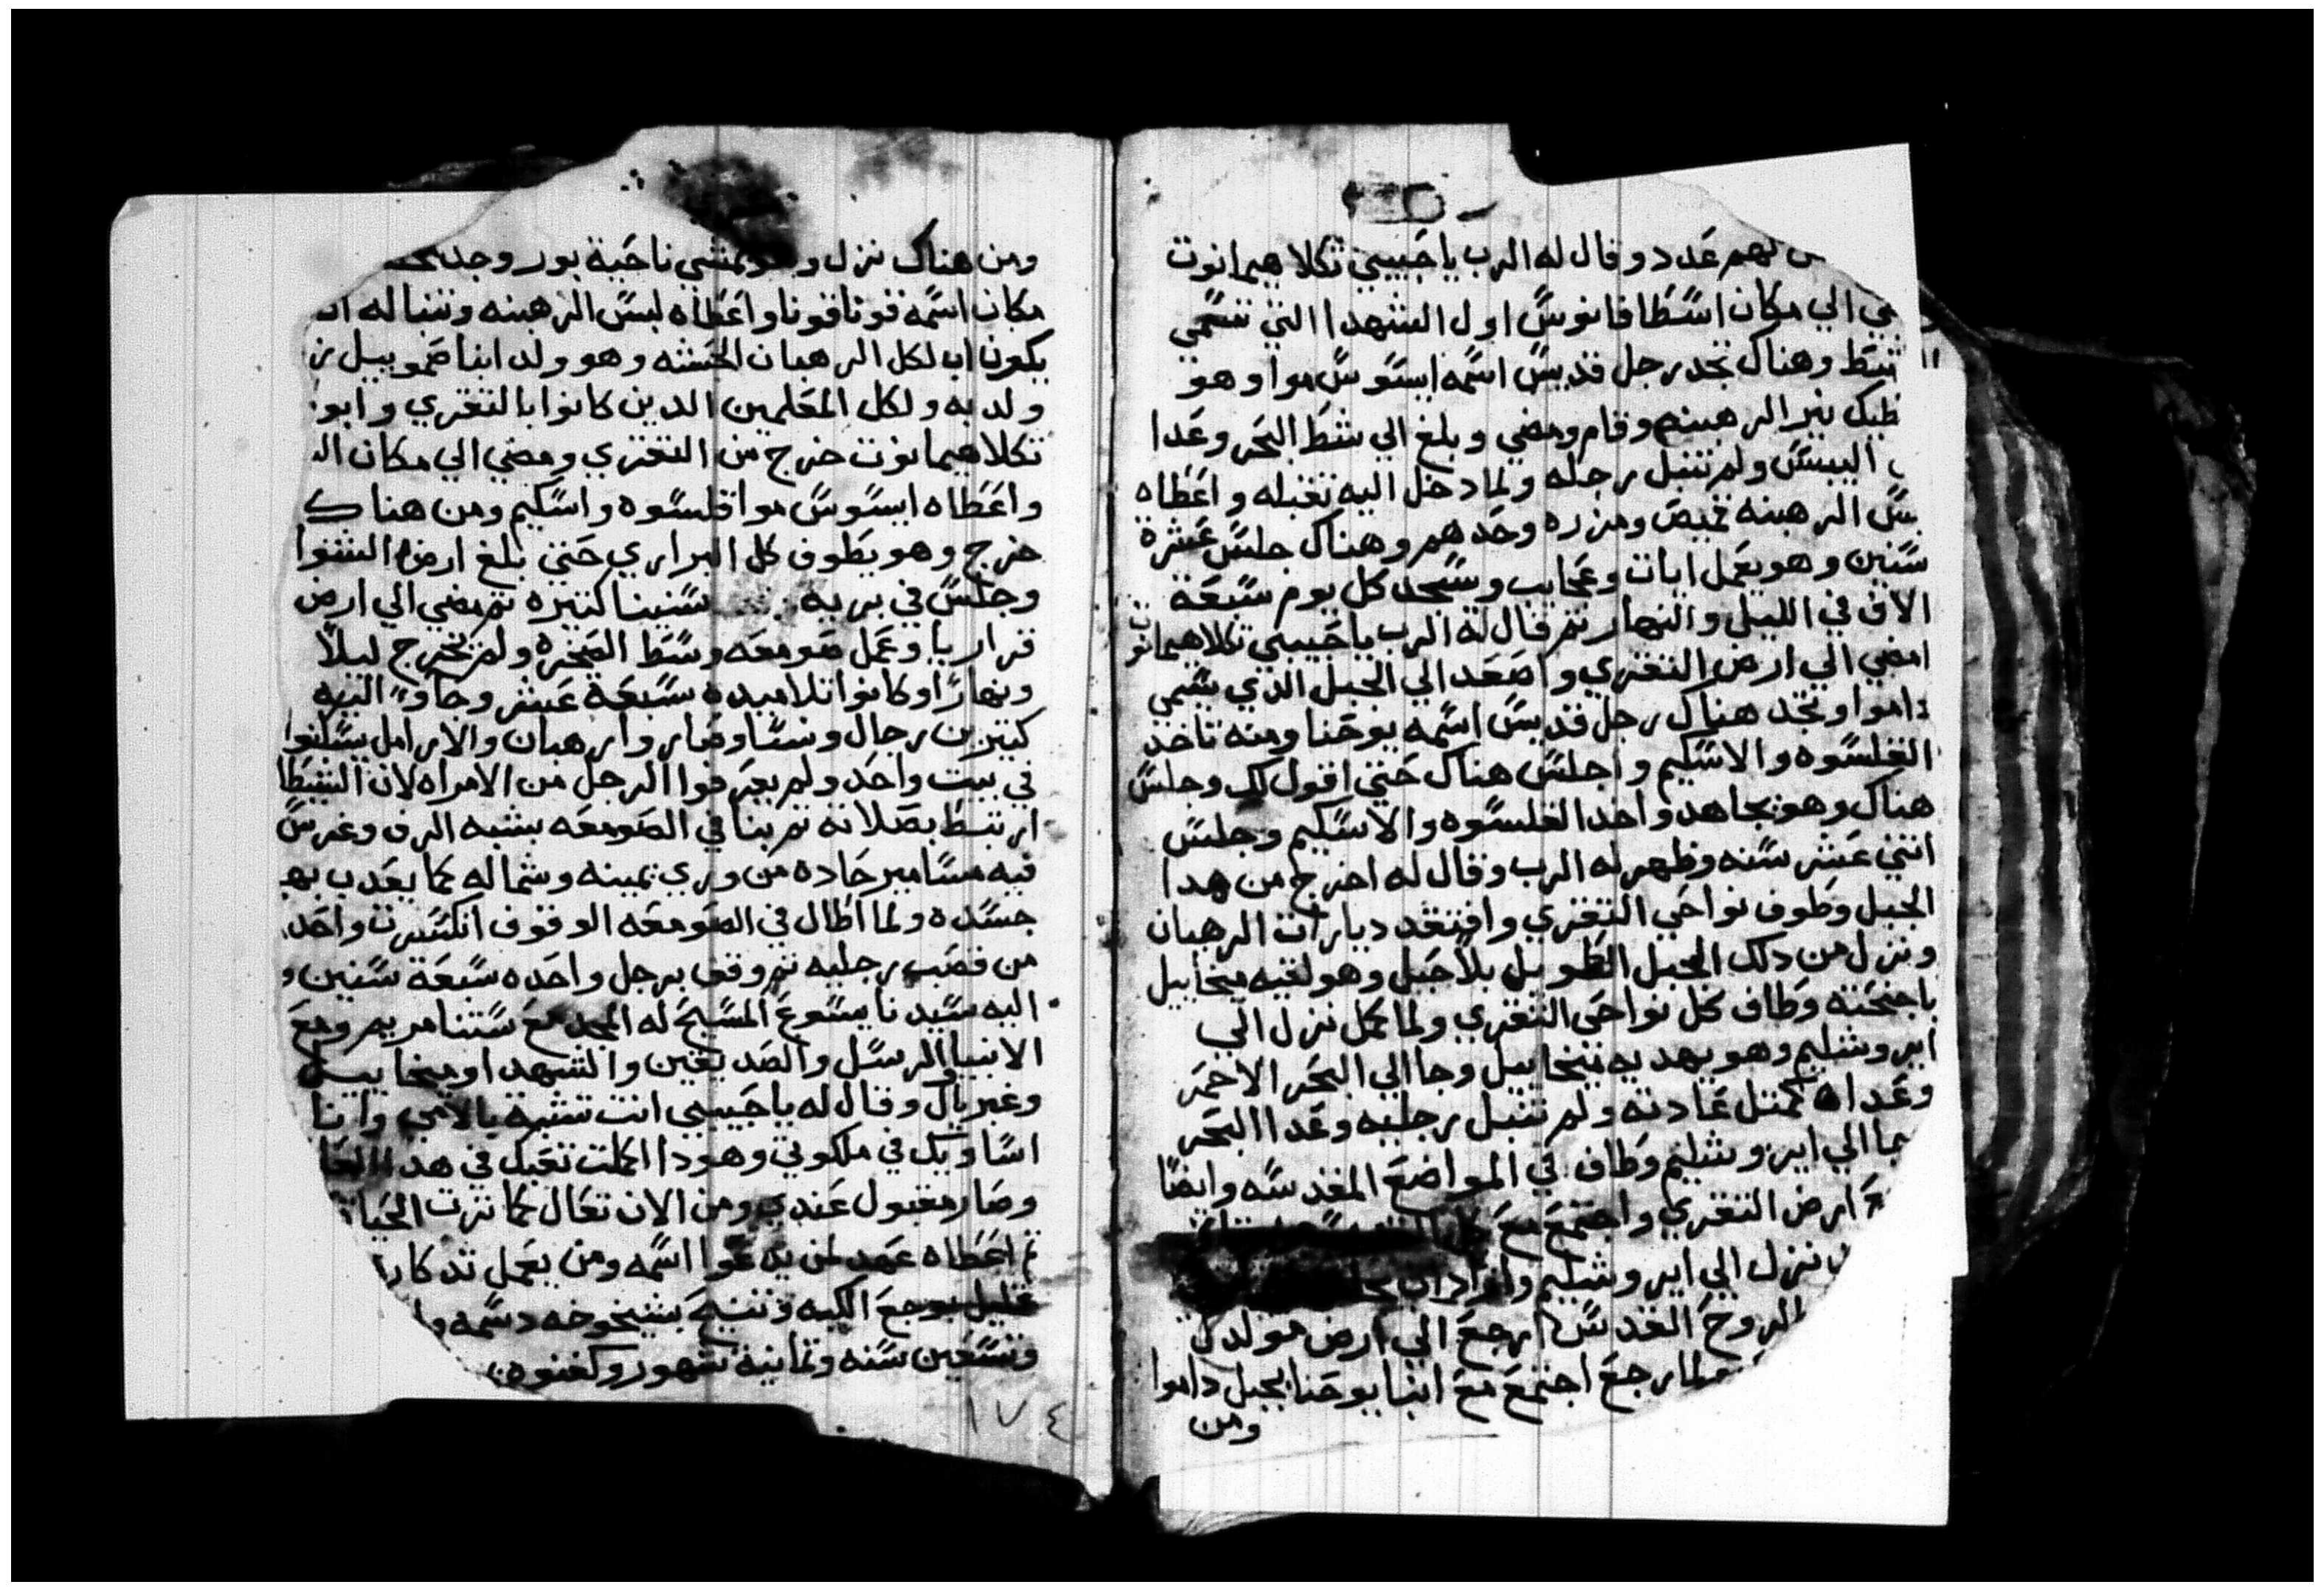 لهم عدد وقال له الرب يا حبيبي تكلا هيمانوت
الي مكان اسطافانوس اول الشهدا التي تسمي
وهناك تجد رجل قديس اسمه ايسوس موا وهو
نير الرهبنه وقام ومضي وبلغ الي شط البحر وعدا
اليبس ولم تتبل رجله ولما دخل اليه تقبله واعطاه
الرهبنه قميص ومزره وحدهم وهناك جلس عشرة
سنين وهو يعمل ايات وعجايب وسجد كل يوم سبعة
الاف في الليل والنهار ثم قال له الرب يا حبيبي تكلا هيمانوت
امضي الي ارض التغري واصعد الي الجبل الذي يسمي
داموا وتجد هناك رجل قديس اسمه يوحنا ومنه تاخد
القلسوه والاسكيم واجلس هناك حتي اقول لك وجلس
هناك وهو يجاهد واخد القلسوه والاسكيم وجلس
اتني عشر سنه وظهر له الرب وقال له اخرج من هدا
الجبل وطوف نواحي التغري وافتقد ديارات الرهبان
ونزل من دلك الجبل الطويل بلا حبل وهو لقيه ميخاييل
باجنحته وطاف كل نواحي التغري ولما كمل نزل الي
ايروشليم وهو يهديه ميخاييل وجا الي البحر الاحمر
وعداه كمثل عادته ولم تتبل رجليه وعدا البحر
الي ايروشليم وطاف في المواضع المقدسه وايضا
ارض التغري واجتمع مع كل
نزل الي ايروشليم واراد ان
الروح القدس ارجع الي ارض مولدك
ولما رجع اجتمع مع ابنا يوحنا بجبل داموا
ومن
ومن هناك نزل وهو يمشي ناحية بور وجد
مكان اسمه قونا قونا واعطاه لبس الرهبنه وتنبا له ان
يكون اب لكل الرهبان الحبشه وهو ولد ابنا صمويبل
ولديه ولكل المعلمين الدين كانوا بالتغري وابو
تكلا هيمانوت خرج من التغري ومضي الي مكان
واعطاه ايسوس موا قلسوه واسكيم ومن هناك
خرج وهو يطوف كل البراري حتي بلغ ارض الشوا
وجلس في بريه سنينا كتيره تم مضي الي ارض
قراريا وعمل صومعه وسط الصخره ولم يخرج ليلا
ونهارا وكانوا تلاميده سبعة عشر وجاو اليه
كتيرين رجال ونسا وصاروا رهبان والارامل يسكنوا
في بيت واحد ولم يعرفوا الرجل من الامراه لان الشيطا
ارتبط بصلاته تم بنا في الصومعه بشبه الرف وغرس
فيه مسامير حاده من وري يمينه وشماله كما يعدب بهم
جسده ولما اطال في الصومعه الوقوف انكسرت واحد
من قصب رجليه تم وقف برجل واحده سبعة سنين
اليه سيدنا يسوع المسيح له المجد مع ستنا مريم ومع
الانبيا والرسل والصديقين والشهدا وميخاييل
وغبريال وقال له يا حبيبي انت تشبه بالامي وانا
اساويك في ملكوتي وهودا اكملت تعبك في هدا
وصار مقبول عندي ومن الان تعال كما ترت الحياه
تم اعطاه عهد لمن يدعوا اسمه ومن يعمل تدكار
قليل بوجع الكبه وتنيح بشيخوخه دسمه
وتسعين سنه وتمانية شهور وكفنوه
١٧٤